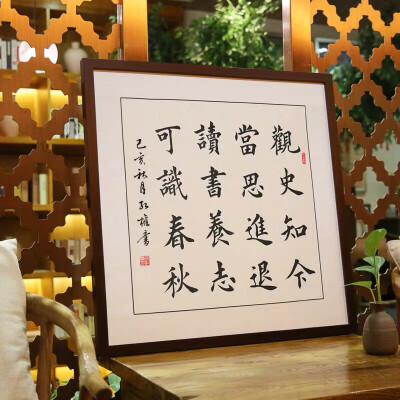 觀史知今
當思進退
讀書養志
可識春秋
己亥秋月